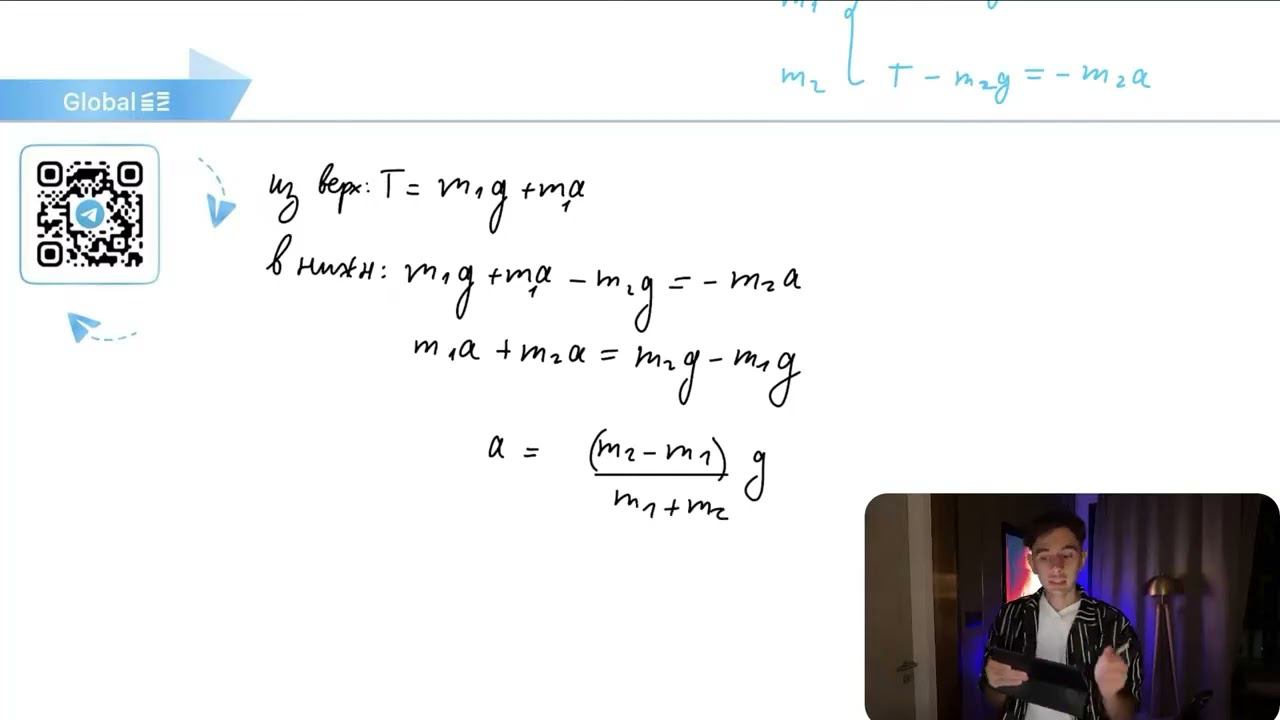 m₁
m₂ { T - m₂g = - m₂a
Global EE
из верх: T = m₁g + m₁a
в нижн: m₁g + m₁a - m₂g = - m₂a
m₁a + m₂a = m₂g - m₁g
a = (m₂ - m₁) / (m₁ + m₂) g